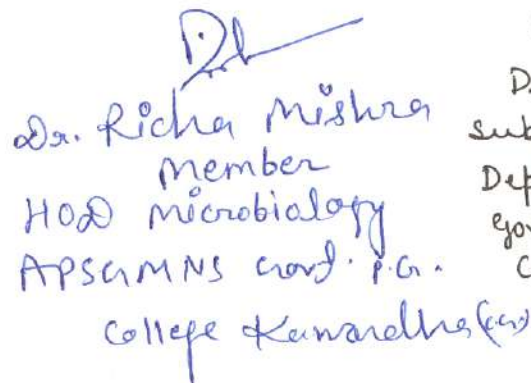 Dr. Richa Mishra
Member
HOD Microbiology
APSGMNS Govt. P.G.
College Kawardha (C.G.)